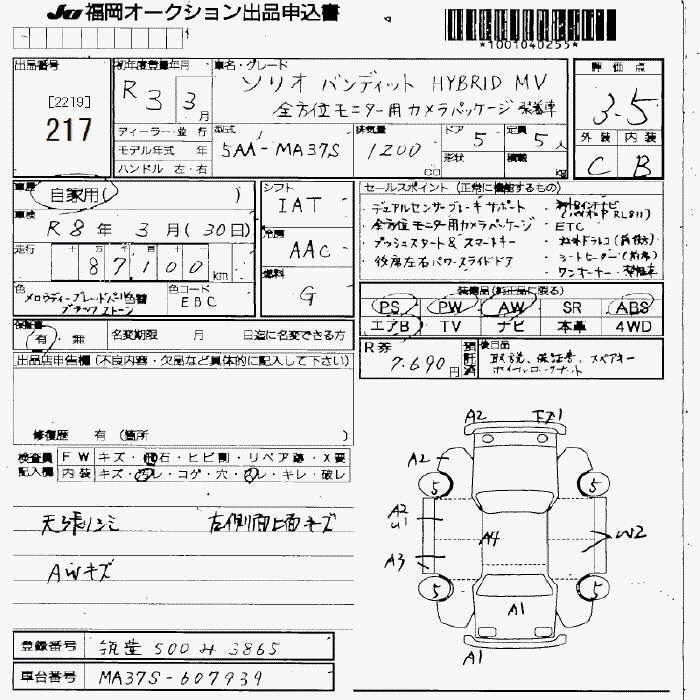 JU 福岡オークション出品申込書
*1001040255*
出品番号
[2219]
217
初年度登録年月
R 3 3 月
車名・グレード
ソリオ バンディット HYBRID MV
全方位モニター用カメラパッケージ 装着車
評価点
3.5
外装 内装
C B
ディーラー・並行
モデル年式 年
ハンドル 左・右
型式
5AA-MA37S
排気量
1200
CC
ドア 5
形状
定員 5人
積載 kg
車歴
自家用( )
車検
R 8 年 3 月 (30日)
走行
十 万 千 百 十
87100 km
色
メロウディープレッドパール
ブラック 2トーン
色替
色コード
EBC
シフト
IAT
冷房
AAC
燃料
G
セールスポイント (正常に機能するもの)
・デュアルセンサーブレーキサポート
・全方位モニター用カメラパッケージ
・プッシュスタート&スマートキー
・後席左右パワースライドドア
・ETC
・シートヒーター(前席)
・ワンオーナー
装備品(純正品に限る)
PS PW AW SR ABS
エアB TV ナビ 本革 4WD
保証書
有・無
名変期限 月 日迄に名変できる方
R券
7,690円
預託済
後日品
取説、保証書、スペアキー
ホイールロックナット
出品店申告欄(不良内容・欠品など具体的に記入して下さい)
修復歴 有 (箇所 )
検査員記入欄
FW キズ・飛石・ヒビ割・リペア跡・X要
内装 キズ・汚レ・コゲ・穴・スレ・キレ・破レ
天張リシミ 左側面上面キズ
AWキズ
A2 下ズ1
A2
5 5
A2
U1
A4
W2
A3
5 5
A1
A1
登録番号
筑豊 500 み 3865
車台番号
MA37S-607939